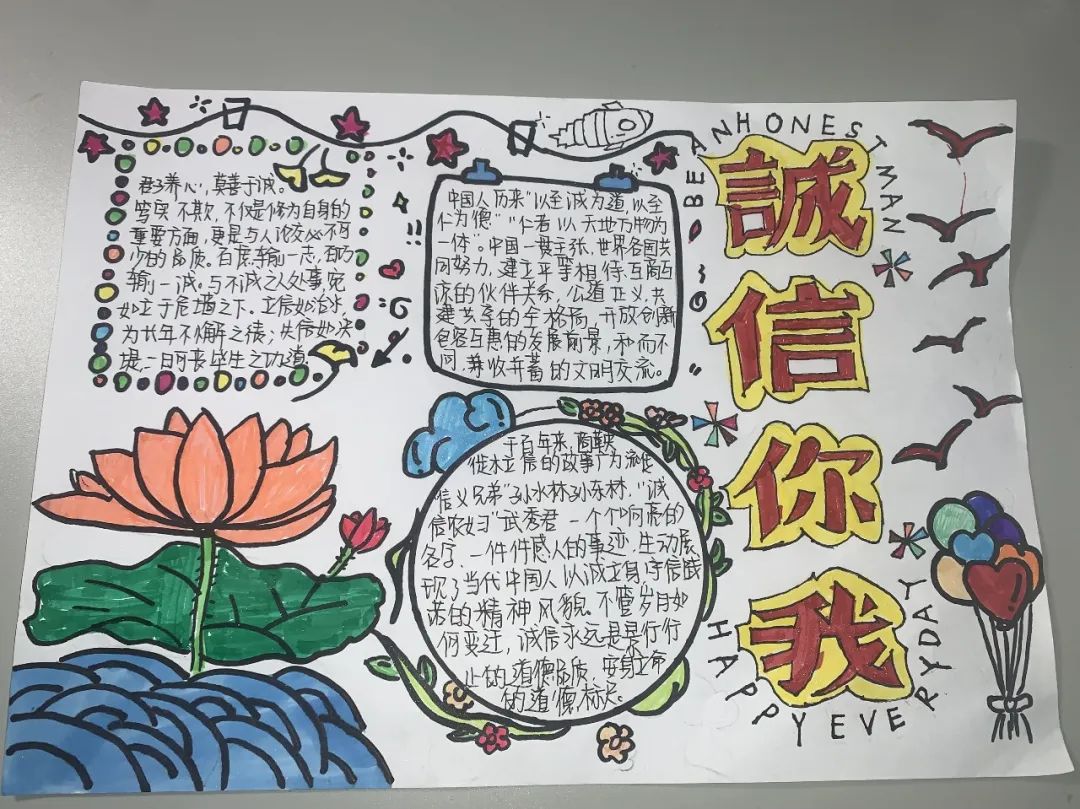 君子养心，莫善于诚。
笃实不欺，不仅是修为自身的
重要方面，更是与人论交必不可
少的品质。百虑输一志，百巧
输一诚。与不诚之人处事，宛
如立于危墙之下。立信如治水，
为长年不懈之待；失信如决
堤，一日可丧毕生之功道
中国人历来"以至诚为道，以至
仁为德""仁者以天地万物为
一体"。中国一贯主张，世界各国共
同努力，建立平等相待、互商互
谅的伙伴关系，公道正义、共
建共享的全格局，开放创新
包容互惠的发展前景，和而不
同，兼收并蓄的文明交流。
于百年来，商鞅
徙木立信的故事广为流传
信义兄弟"孙水林孙东林，"诚
信农妇"武秀君 一个个响亮的
名字、一件件感人的事迹，生动展
现了当代中国人以诚立身、守信践
诺的精神风貌。不管岁月如
何变迁，诚信永远是是行行
止的道德品质、安身立命
的道德标尺。
BE AN HONEST MAN
誠
信
你
我
HAPPY EVERYDAY